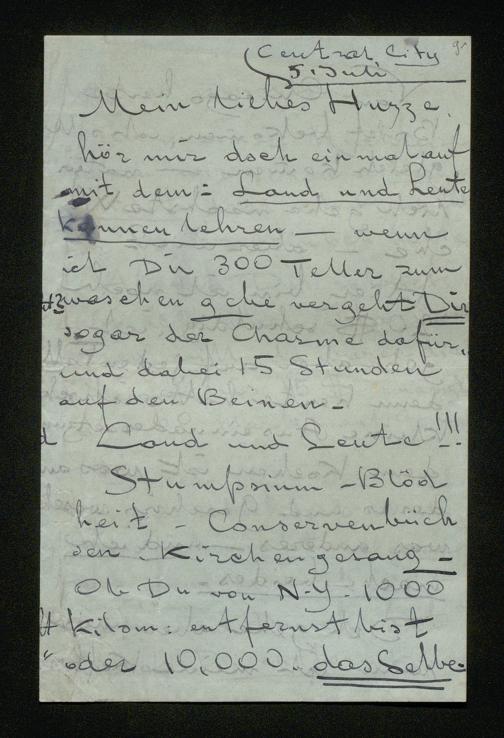 Central City
5. Juli
Mein liebes Huzze.
hör mir doch einmal auf
mit dem = Land und Leute
kennen lehren — wenn
ich Dir 300 Teller zum
waschen gebe vergeht Dir
sogar der Charme dafür,
und dabei 15 Stunden
auf den Beinen -
Land und Leute !!!
Stumpsinn - Blöd
heit - Conservenbüch
sen - Kirchengesang -
Ob Du von N.Y. 1000
Kilom: entfernst bist
oder 10,000. dasselbe.